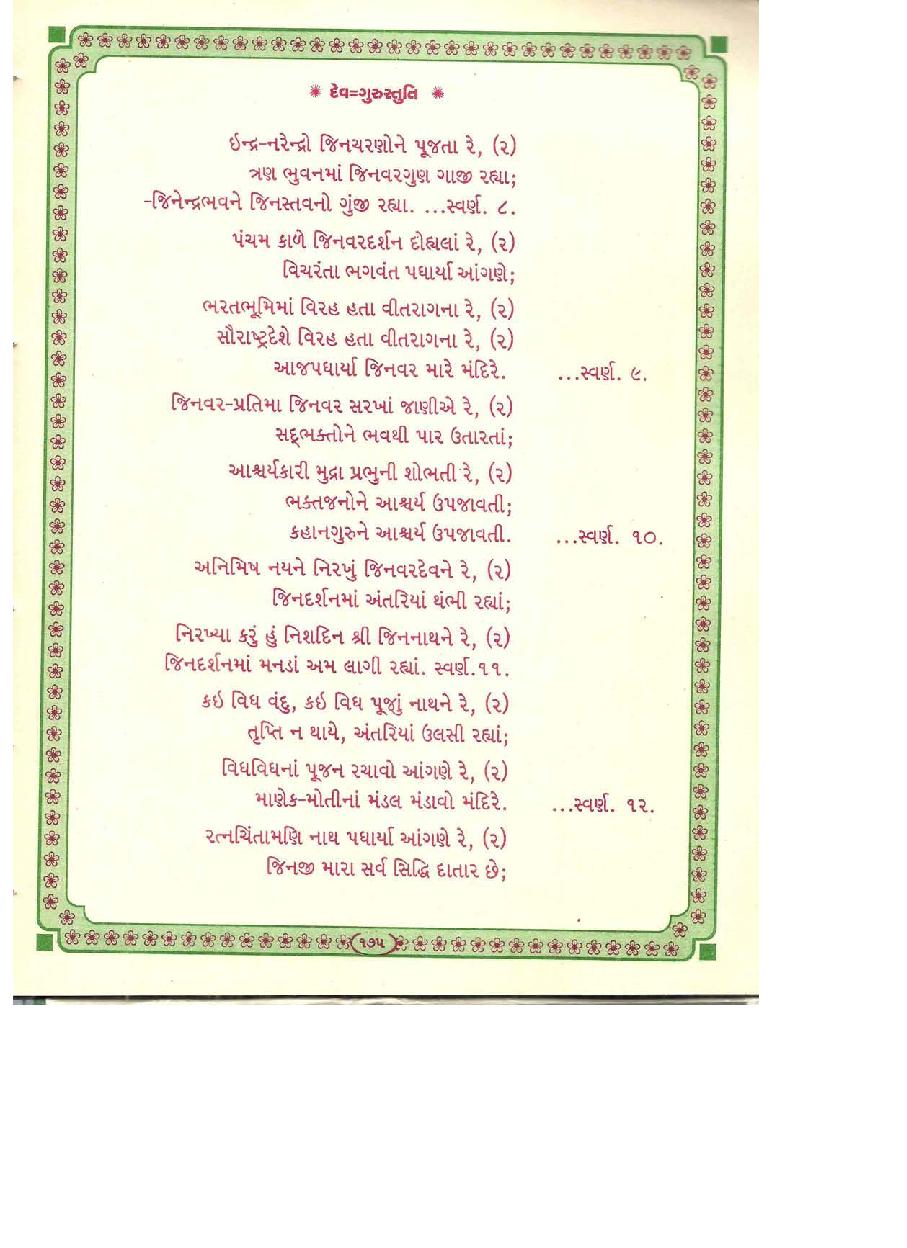 ✺ દેવ=ગુરુસ્તુતિ ✺
ઇન્દ્ર-નરેન્દ્રો જિનચરણોને પૂજતા રે, (૨)
ત્રણ ભુવનમાં જિનવરગુણ ગાજી રહ્યા;
-જિનેન્દ્રભવને જિનસ્તવનો ગુંજી રહ્યા. ...સ્વર્ણ. ૮.
પંચમ કાળે જિનવરદર્શન દોહ્યલાં રે, (૨)
વિચરંતા ભગવંત પધાર્યા આંગણે;
ભરતભૂમિમાં વિરહ હતા વીતરાગના રે, (૨)
સૌરાષ્ટ્રદેશે વિરહ હતા વીતરાગના રે, (૨)
આજપધાર્યા જિનવર મારે મંદિરે. ...સ્વર્ણ. ૯.
જિનવર-પ્રતિમા જિનવર સરખાં જાણીએ રે, (૨)
સદ્ભક્તોને ભવથી પાર ઉતારતાં;
આશ્ચર્યકારી મુદ્રા પ્રભુની શોભતી રે, (૨)
ભક્તજનોને આશ્ચર્ય ઉપજાવતી;
કહાનગુરુને આશ્ચર્ય ઉપજાવતી. ...સ્વર્ણ. ૧૦.
અનિમિષ નયને નિરખું જિનવરદેવને રે, (૨)
જિનદર્શનમાં અંતરિયાં થંભી રહ્યાં;
નિરખ્યા કરું હું નિશદિન શ્રી જિનનાથને રે, (૨)
જિનદર્શનમાં મનડાં અમ લાગી રહ્યાં. સ્વર્ણ.૧૧.
કઇ વિધ વંદુ, કઇ વિધ પૂજું નાથને રે, (૨)
તૃપ્તિ ન થાયે, અંતરિયાં ઉલસી રહ્યાં;
વિધવિધનાં પૂજન રચાવો આંગણે રે, (૨)
માણેક-મોતીનાં મંડલ મંડાવો મંદિરે. ...સ્વર્ણ. ૧૨.
રત્નચિંતામણિ નાથ પધાર્યા આંગણે રે, (૨)
જિનજી મારા સર્વ સિદ્ધિ દાતાર છે;
૧૭૫